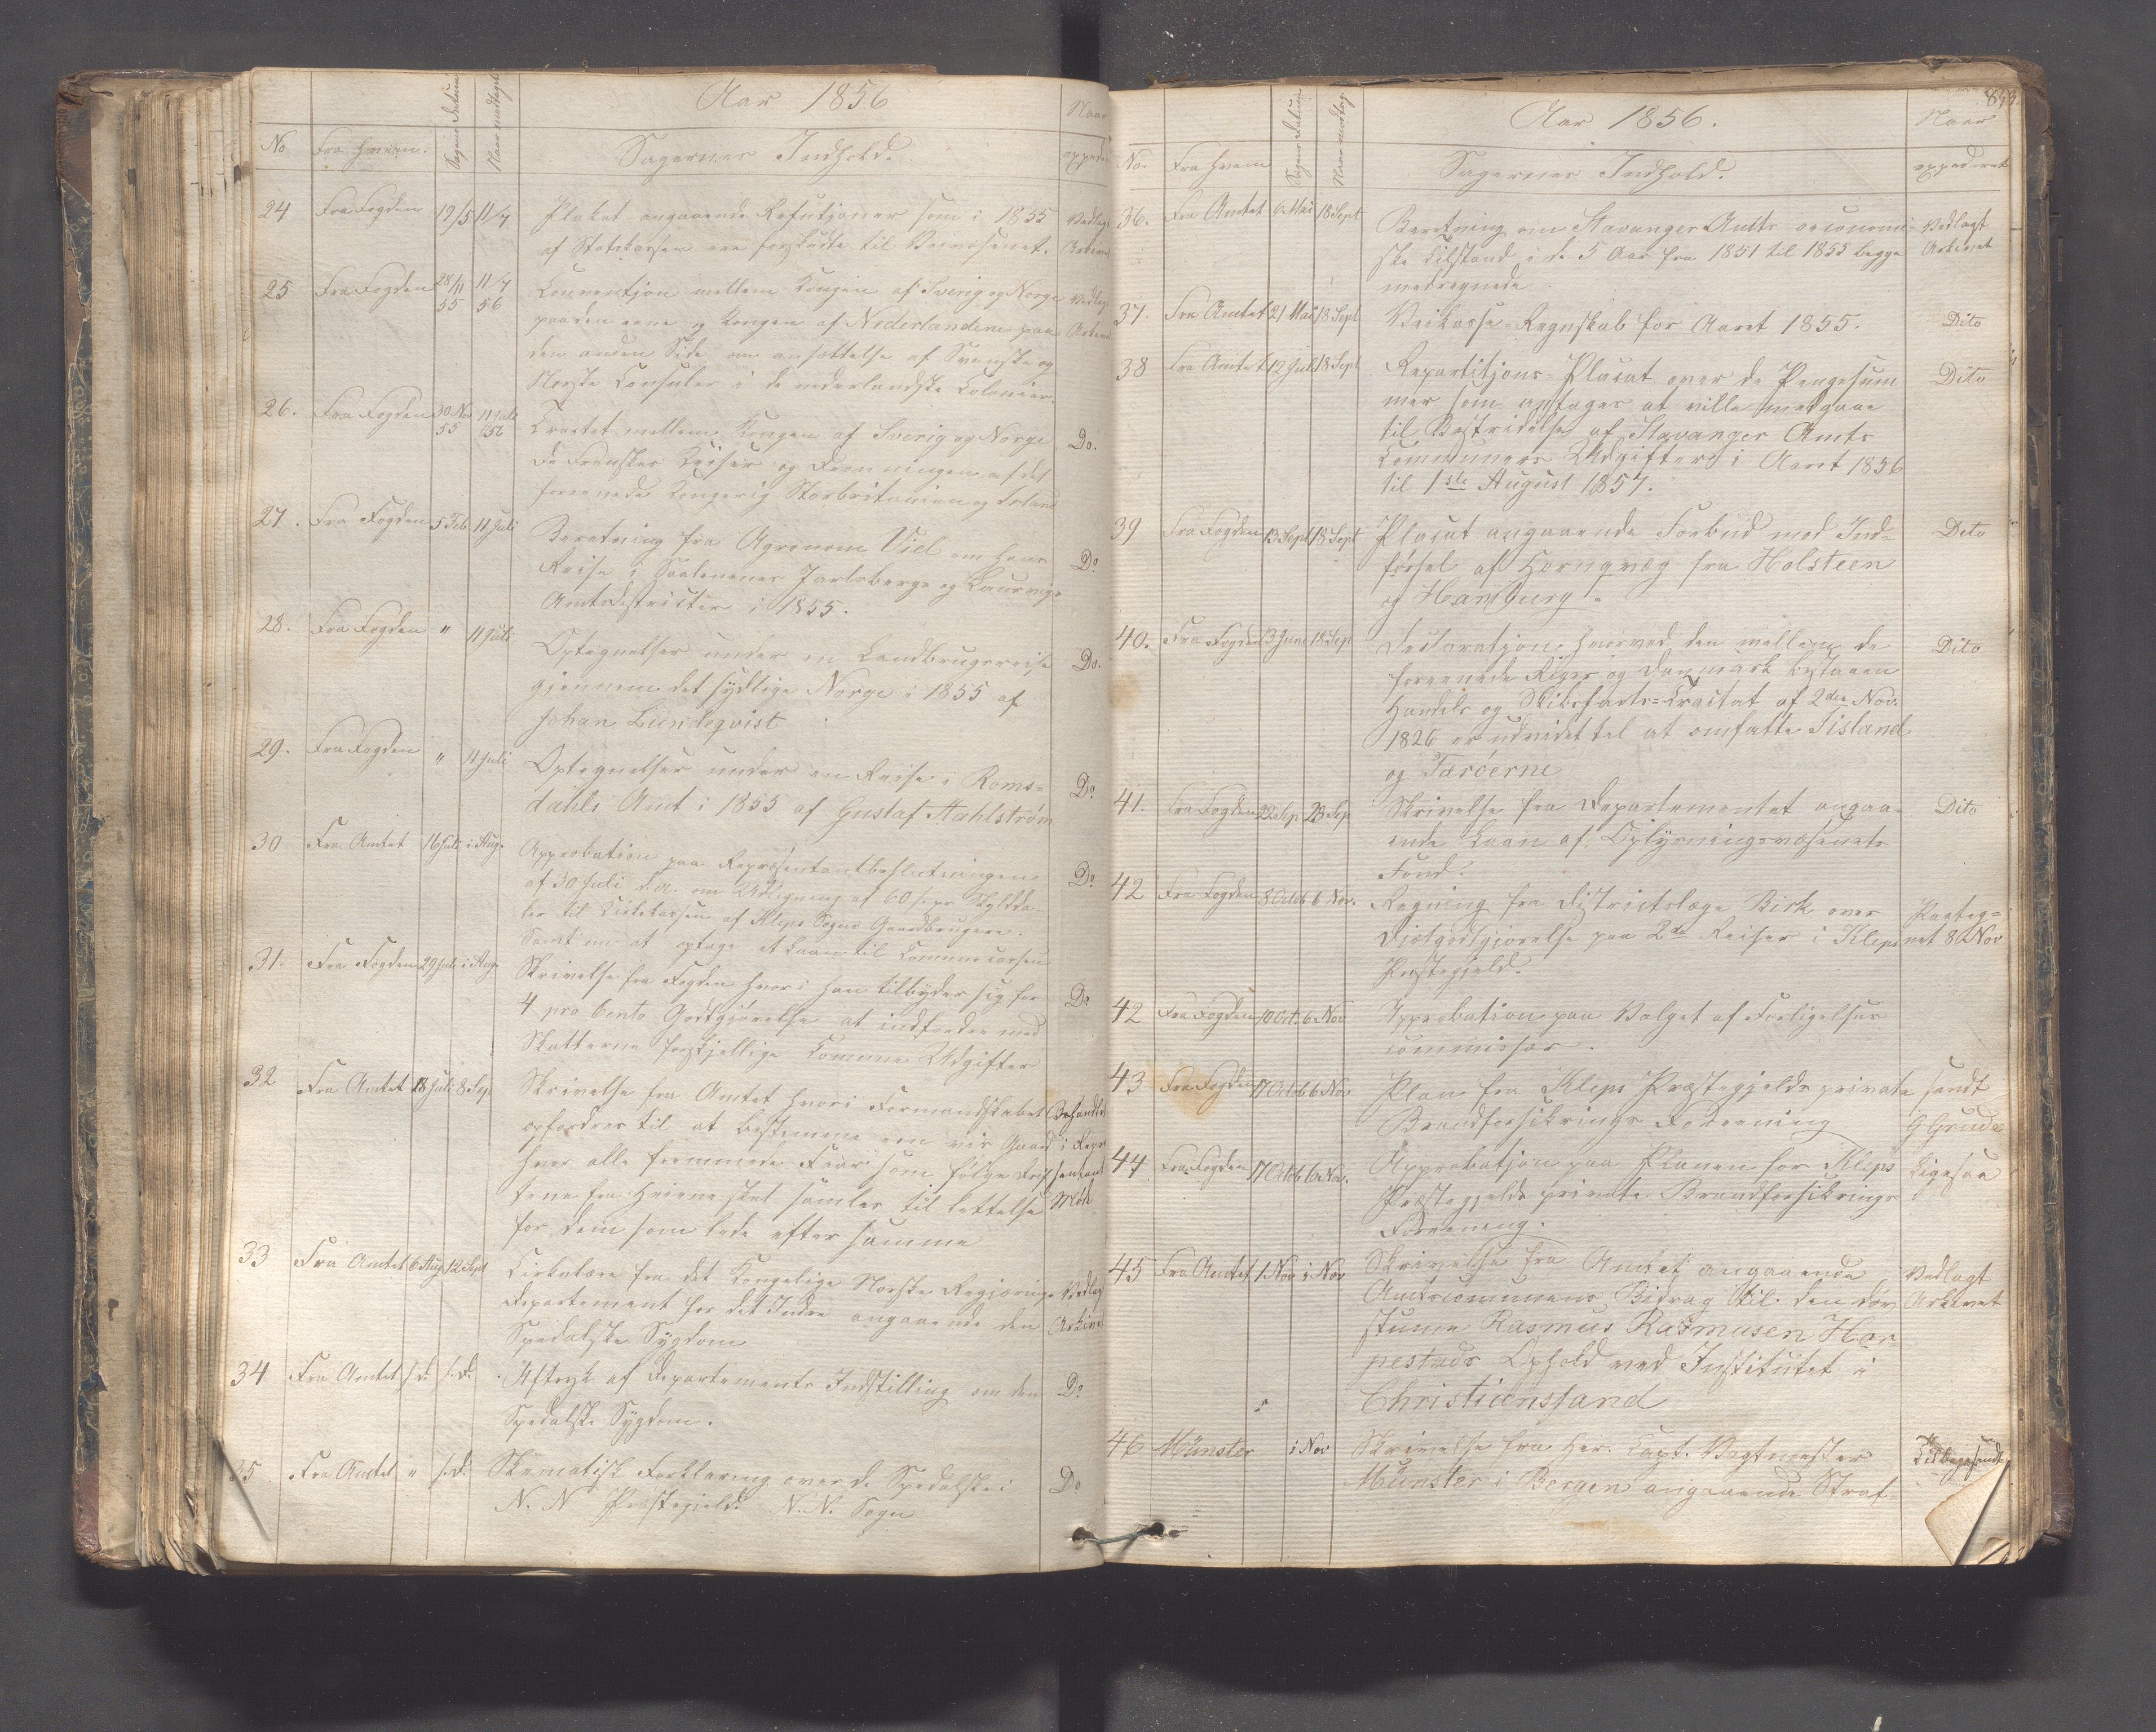 Aar 1856
Naar
No
Fra Hvem.
Sagens Datum
Naar modtaget
Sagernes Indhold.
24 Fra Fogden 19/5 11/7 Plakat angaaende Refusjoner som i 1855 Vedlagt
af Statskassen ere forskudte til Veivæsenet. Arkivet
25 Fra Fogden 28/11 55 11/7 56 Convention mellem Kongen af Sverig og Norge Vedlagt
paa den eene og Kongen af Nederlandene paa Arkivet
den anden Side om ansættelse af Svenske og
Norske Consuler i de nederlandske Colonier.
26. Fra Fogden 30 Nov 55 11 Juli 56 Tractat mellem Kongen af Sverig og Norge Do.
De Franskes Keiser og Dronningen af det
foreenede Kongerig Storbritanien og Irland
27. Fra Fogden 5 Feb 11 Juli Beretning fra Agronom Viel om hans
Reise i Jarlsbergs og Laurvigs Do
Amtsdistricter i 1855.
28. Fra Fogden " 11 Juli Optegnelser under en Landbrugsreise Do.
gjennem det sydlige Norge i 1855 af
Johan Lundeqvist
29. Fra Fogden " 11 Juli Optegnelser under en Reise i Roms= Do
dahls Amt i 1855 af Gustaf Stahlstrøm
30 Fra Amtet 16 Juli i Aug. Approbation paa Repræsentantbeslutningen
af 30 Juli d. a. om Udligning af 60 s. pr Skylddaler Do
til Kirkekassen af Kleps Sogns Gaardbrugere.
Samt om at optage et Laan til Communecassen
31. Fra Fogden 29 Juli i Aug. Skrivelse fra Fogden hvori han tilbyder sig for Do
4 pro Cento Godtgjørelse at indfordre med
Skatterne forskjellige Commune Udgifter
32 Fra Amtet 18 Juli 8 Sep Skrivelse fra Amtet hvori Formandskabet Behandlet
opfordres til at bestemme een vis Gaard i Repræ
hvor alle fremmede Faar som følge Drif sentant
tene fra Heiene skal samles til lettelse Møde
for dem som lede efter samme
33 Fra Amtet 6 Aug 12 Sept Cirkulære fra det Kongelige Norske Regjerings Vedlagt
Departement for det Indre angaaende den Arkivet
Spedalske Sygdom
34 Fra Amtet s. d. s. d. Aftryk af Departements Indstilling om den Do
Spedalske Sygdom.
35 Fra Amtet " s. d. Skematisk Forklaring over de Spedalske i Do
N. N Præstegjeld N. N. Sogn
Aar 1856.
Naar
No.
Fra Hvem
Sagens Datum
Naar modtag.
Sagernes Indhold.
expederet
36. Fra Amtet 6 Mai 18 Sept Beretning om Stavanger Amts oeconomi Vedlagt
ske Tilstand i de 5 Aar fra 1851 til 1855 begge Arkivet
medregnede.
37. Fra Amtet 21 Mai 18 Sept Veikasse-Regnskab for Aaret 1855. Dito
38 Fra Amtet 12 Juli 18 Sept Repartitjons-Placat over de Pengesum Dito
mer som antages at ville medgaae
til Bestridelse af Stavanger Amts
Communers Udgifter i Aaret 1856
til 1ste August 1857.
39 Fra Fogden 13 Sept 18 Sept Placat angaaende Forbud mod Ind= Dito
førsel af Hornqvæg fra Holsteen
og Hamburg.
40. Fra Fogden 13 Juni 18 Sep Declaratjon hvorved den mellem de Dito
foreenede Riger og Danmark bestaaen
Handels og Skibsfarts=Tractat af 2den Nov.
1826 er udvidet til at omfatte Iisland
og Færøerne
41. Fra Fogden 22 Sep 23 Sep Skrivelse fra Departementet angaa= Dito
ende Laan af Oplysningsvæsenets
Fond.
42 Fra Fogden 8 Octob 6 Nov. Regning fra Districtslæge Birk over Paateg=
Diætgodtgjørelse paa 2de Reiser i Kleps net 8 Nov
Præstegjeld.
42 Fra Fogden 10 Oct. 6 Nov Approbation paa Valget af Forligelses
commissær.
43 Fra Fogden 17 Octob 6 Nov Plan fra Kleps Præstegjelds private sendt
Brandforsikrings Foreening G Grude
44 Fra Fogden 17 Octob 6 Nov. Approbatjon paa Planen for Kleps Ligesaa
Præstegjelds private Brandforsikrings
Foreening.
45 Fra Amtet 1 Nov i Nov Skrivelse fra Amtet angaaende Vedlagt
Amtscommunens Bidrag til den døv Arkivet
stumme Rasmus Rasmusen Hor=
pestads Ophold ved Institutet i
Christianssand
46 Münster i Nov Skrivelse fra Her. Capt. Vagtmester Tilbagesendt
Münster i Bergen angaaende Straf=